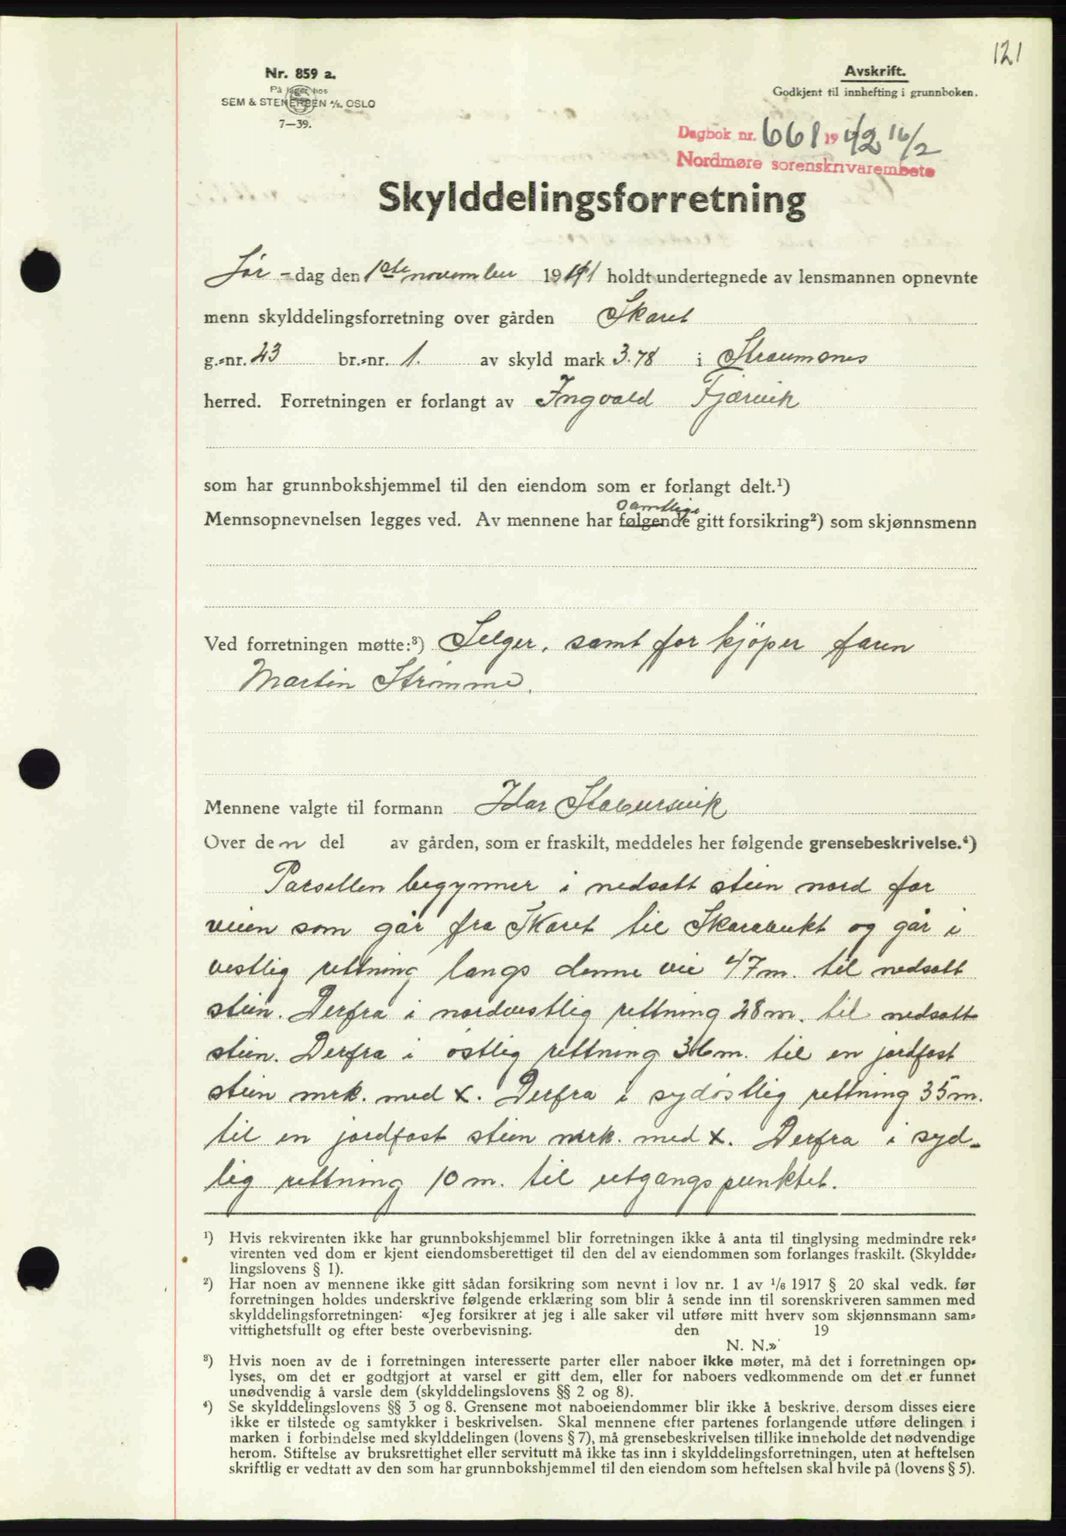 121
Nr. 859 a.
På lager hos
SEM & STENERSEN A/S. OSLO
7—39.
Avskrift.
Godkjent til innhefting i grunnboken.
Dagbok nr. 661 1942 16/2
Nordmøre sorenskriverembete
Skylddelingsforretning
Lør-dag den 1ste november 1941 holdt undertegnede av lensmannen opnevnte
menn skylddelingsforretning over gården Skaret
g.-nr. 43 br.-nr. 1. av skyld mark 3.78 i Straumsnes
herred. Forretningen er forlangt av Ingvald Fjærvik
som har grunnbokshjemmel til den eiendom som er forlangt delt.¹)
samtlige
Mennsopnevnelsen legges ved. Av mennene har følgende gitt forsikring²) som skjønnsmenn
Ved forretningen møtte:³) Selger, samt for kjöper faren
Martin Strømme.
Mennene valgte til formann Idar Stabursvik
Over den del av gården, som er fraskilt, meddeles her følgende grensebeskrivelse.⁴)
Parsellen begynner i nedsatt stein nord for
veien som går fra Skaret til Skarabukt og går i
vestlig rettning langs denne vei 47 m. til nedsatt
stein. Derfra i nordvestlig rettning 28 m. til nedsatt
stein. Derfra i östlig rettning 36 m. til en jordfast
stein mrk. med x. Derfra i sydöstlig rettning 35 m.
til en jordfast stein mrk. med x. Derfra i syd-
lig rettning 10 m. til utgangspunktet.
¹) Hvis rekvirenten ikke har grunnbokshjemmel blir forretningen ikke å anta til tinglysing medmindre rek-
virenten ved dom er kjent eiendomsberettiget til den del av eiendommen som forlanges fraskilt. (Skyldde-
lingslovens § 1).
²) Har noen av mennene ikke gitt sådan forsikring som nevnt i lov nr. 1 av 1/6 1917 § 20 skal vedk. før
forretningen holdes underskrive følgende erklæring som blir å sende inn til sorenskriveren sammen med
skylddelingsforretningen: «Jeg forsikrer at jeg i alle saker vil utføre mitt hverv som skjønnsmann sam-
vittighetsfullt og efter beste overbevisning. den 19
N. N.»
³) Hvis noen av de i forretningen interesserte parter eller naboer ikke møter, må det i forretningen op-
lyses, om det er godtgjort at varsel er gitt dem, eller for naboers vedkommende om det er funnet
unødvendig å varsle dem (skylddelingslovens §§ 2 og 8).
⁴) Se skylddelingslovens §§ 3 og 8. Grensene mot naboeiendommer blir ikke å beskrive, dersom disses eiere
ikke er tilstede og samtykker i beskrivelsen. Skal mennene efter partenes forlangende utføre delingen i
marken i forbindelse med skylddelingen (lovens § 7), må grensebeskrivelsen tillike inneholde det nødvendige
herom. Stiftelse av bruksrettighet eller servitutt må ikke tas inn i skylddelingsforretningen, uten at heftelsen
skriftlig er vedtatt av den som har grunnbokshjemmel til den eiendom som heftelsen skal hvile på (lovens § 5).